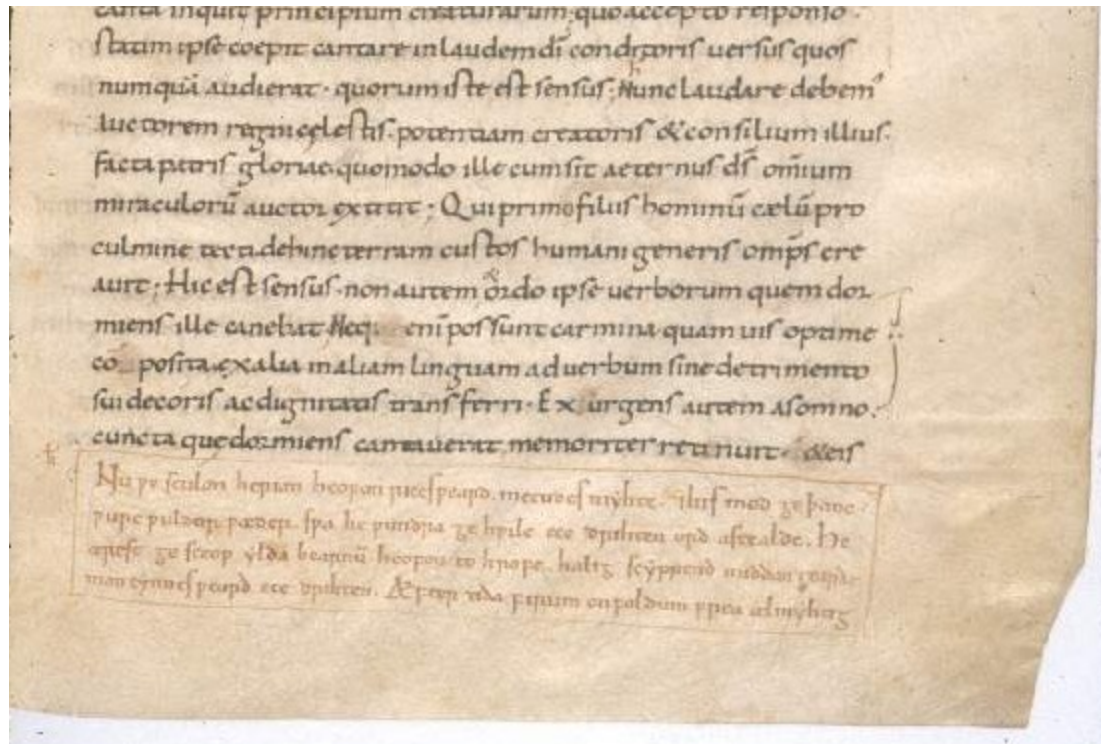 canta inquit principium creaturarum; quo accepto responso·
statim ipse coepit cantare in laudem dī conditoris uersus quos
numquā audierat· quorum iste est sensus; Nunc laudare debem'
Auctorem regni cęlestis· potentiam creatoris & consilium illius·
facta patris gloriae quomodo ille cum sit aeternus ds̄ omīum
miraculorū auctor extitit; Qui primo filiis hominū cælū pro
culmine tecti dehinc terram custos humani generis omp̄s cre
auit; Hic est sensus· non autem ordo ipse uerborum quem dor
miens ille canebat Neq enī possunt carmina· quam uis optime
co posita ex alia in aliam linguam ad uerbum sine detrimento
sui decoris ac dignitatis transferri· Exurgens autem a somno·
cuncta que dormiens cantauerat memoriter retinuit· & eis
Nu ƿe sculon herian heofon ricesƿeard. metudes myhte. ⁊his mod geþanc.
ƿurc ƿuldor fæder. sƿa he ƿundra ge hƿilc ece drihten ord astealde. He
ærest ge sceop ylda bearnū heofon to hrofe. halig scyppend middangearde
mon cynnes ƿeard ece drihten. Æfter tida firum on foldum frea almyhtig